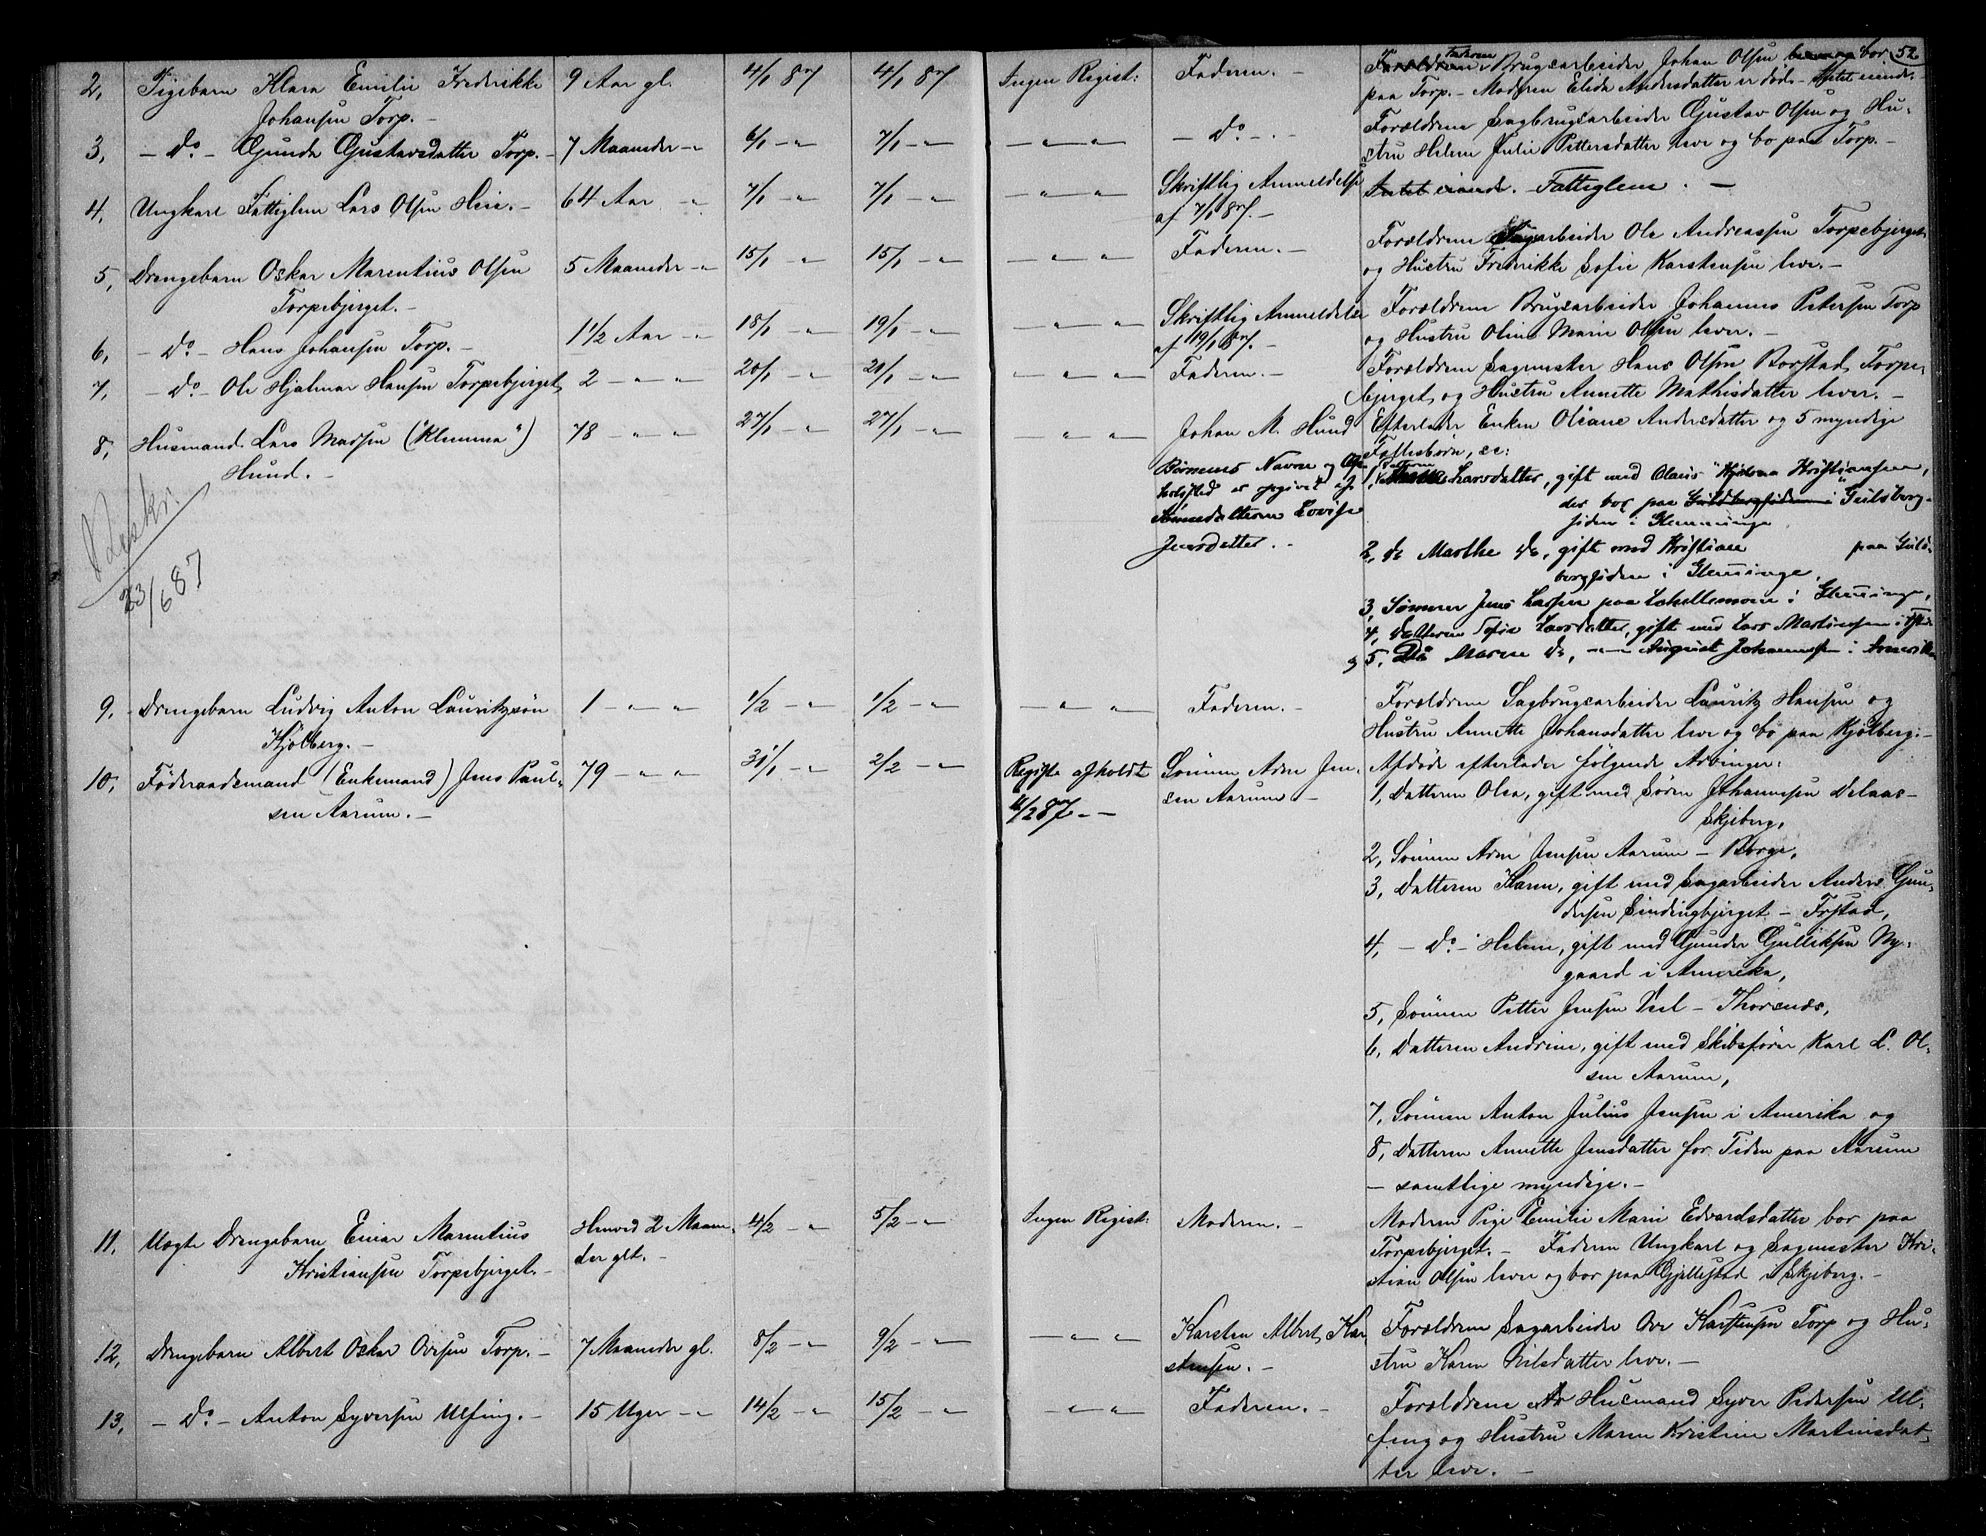 52
2, Pigebarn Klara Emilie Frederikke
Johansen Torp. —
9 Aar gl.
4/1 87
4/1 87
Ingen Regist:
Faderen. —
Faderen Brugsarbeider Johan Olsen bor
paa Torp. — Moderen Elida Andersdatter er död. — Intet eiende.
3, — Do — Gunda Gustavsdatter Torp. —
7 Maaneder —"
6/1 —"
7/1 —"
—"—"
— Do —
Forældrene Sagbrugsarbeider Gustav Olsen og Hu-
stru Helene Julie Pettersdatter leve og bo paa Torp. —
4, Ungkarl Fattiglem Lars Olsen Heie. —
64 Aar —"
7/1 —"
7/1 —"
—"—"
Skriftlig Anmeldelse
af 7/1 87. —
Intet eiende. Fattiglem. —
5, Drengebarn Oskar Marentius Olsen
Torpebjerget. —
5 Maaneder —"
15/1 —"
15/1 —"
—"—"
Faderen. —
Forældrene Sagarbeider Ole Andreassen Torpebjerget
og Hustru Frederikke Sofie Karstensen leve. —
6, — Do — Hans Johansen Torp. —
1 1/2 Aar —"
18/1 —"
19/1 —"
—"—"
Skriftlig Anmeldelse
af 19/1 87. —
Forældrene Brugsarbeider Johannes Petersen Torp
og Hustru Oline Marie Olsen lever. —
7, — Do — Ole Hjalmar Hansen Torpebjerget,
2 —"—"
20/1 —"
20/1 —"
—"—"
Faderen. —
Forældrene Sagmester Hans Olsen Borstad, Torpe-
bjerget, og Hustru Annette Mathisdatter lever. —
8, Husmand Lars Madsen ("Klemma")
Hund. —
78 —"—"
27/1 —"
27/1 —"
—"—"
Johan M. Hund
Börnenes Navne og Op-
holdsted er opgivet af
Sönnedatteren Lovise
Jensdatter. —
Efterlader Enken Oliane Andersdatter og 5 myndige
Fællesbörn, sc:
1, Larsdatter, gift med Olaus Kristiansen,
der bor paa Guldberg-
siden i Glemminge
2, do Marthe do, gift med Kristian paa Guld-
bergsiden i Glemminge,
3, Sönnen Jens Larsen paa i Glemminge,
4, Datteren Sofie Larsdatter, gift med Lars Martinsen i
5, Do Maren do, —"— August Johannesen i Amerika
23/6 87
9, Drengebarn Ludvig Anton Lauritzsön
Kjölberg. —
1 —"—"
1/2 —"
1/2 —"
—"—"
Faderen. —
Forældrene Sagbrugsarbeider Lauritz Hansen og
Hustru Annette Johansdatter leve og bo paa Kjölberg: —
10, Föderaadsmand (Enkemand) Jens Paul-
sen Aarum. —
79 —"—"
31/1 —"
2/2 —"
Regist: afholdt
11/2 87. —
Sönnen Arne Jen-
sen Aarum —
Afdöde efterlader fölgende Arvinger:
1, Datteren Olea, gift med Sören Johannesen —
Skjeberg,
2, Sönnen Arne Jensen Aarum — Borge,
3, Datteren Karen, gift med Sagarbeider Anders Gun-
dersen Sindingbjerget — Tistad,
4, — Do — Helene, gift med Gunder Gulliksen Ny-
gaard i Amerika,
5, Sönnen Petter Jensen — Thorsnæs,
6, Datteren Andrine, gift med Skibsförer Karl L. Ol-
sen Aarum,
7, Sönnen Anton Julius Jensen i Amerika og
8, Datteren Annette Jensdatter for Tiden paa Aarum
— samtlige myndige. —
11, Uægte Drengebarn Einar Marentius
Kristiansen Torpebjerget. —
Henved 2 Maane-
der glt. —
4/2 —"
5/2 —"
Ingen Regist:
Moderen. —
Moderen Pige Emilie Marie Edvardsdatter bor paa
Torpebjerget. — Faderen Ungkarl og Sagmester Kri-
stian Olsen lever og bor paa Gjellestad i Skjeberg. —
12, Drengebarn Albert Oskar Ovesen Torp. —
7 Maaneder gl.
8/2 —"
9/2 —"
—"—"
Karsten Albert Kar-
stensen. —
Forældrene Sagarbeider Ove Karstensen Torp og Hu-
stru Karen Nilsdatter leve. —
13, — Do — Anton Syversen Ulfeng. —
15 Uger —"
14/2 —"
15/2 —"
—"—"
Faderen. —
Forældrene Husmand Syver Pedersen Ul-
feng og Hustru Maren Kristine Martinsdat-
ter leve. —